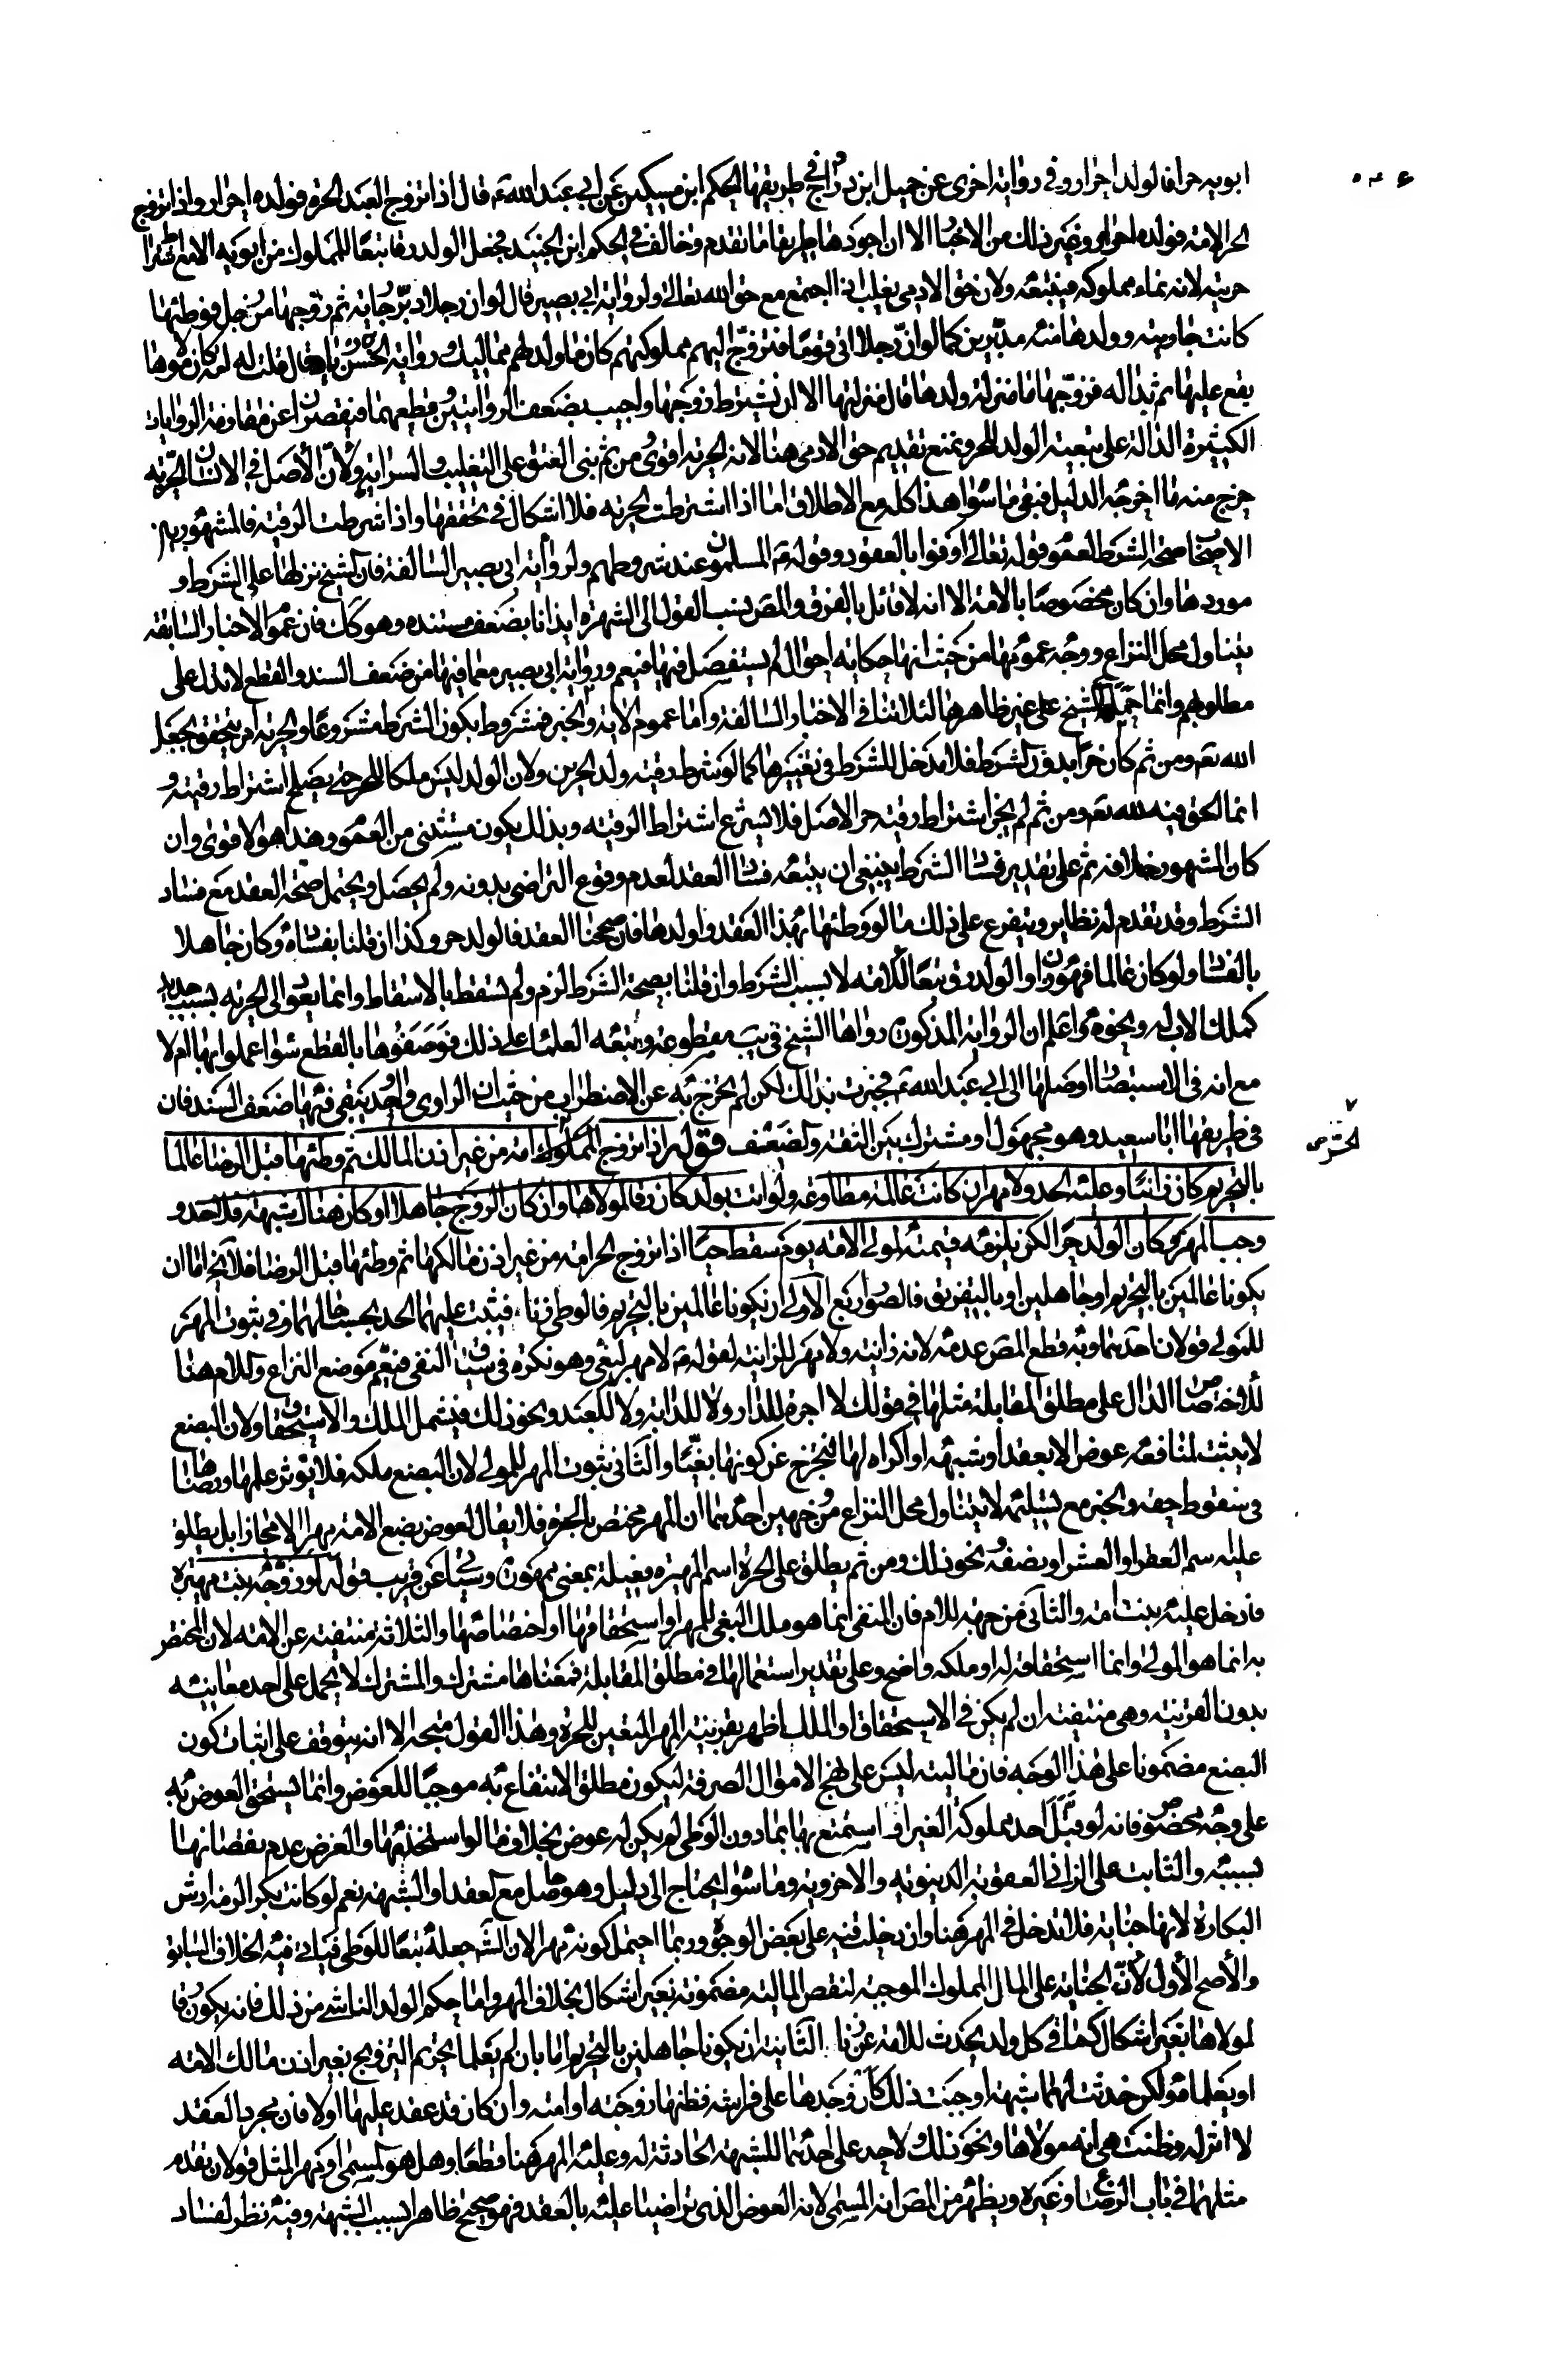 ابويه حرا فالولد احرار وفى رواية اخرى عن جميل ابن دراج فى طريقها الحكم ابن مسكين عن ابى عبد الله ع قال اذا تزوج العبد الحرة فولده احرار واذا تزوج
الحر الامة فولده احرار وغير ذلك من الاخبار الا ان اجودها طريقا ما تقدم وخالف فى الحكم ابن الجنيد فجعل الولد رقا تبعا للمملوك من ابويه الا مع اشتراط
حريته لانه نماء مملوكه فيتبعه ولان حق الادمى يغلب اذا اجتمع مع حق الله تعالى ولرواية ابى بصير قال لو ان رجلا دبر جارية ثم زوجها من رجل فوطئها
كانت جاريته وولدها منه مدبرين كما لو ان رجلا اتى قوما فتزوج اليهم مملوكتهم كان ما ولد لهم مماليك ورواية الحسن بن زياد قال قلت له امة كان مولاها
يقع عليها ثم بدا له فزوجها ما منزلة ولدها قال منزلتها الا ان يشترط زوجها واجيب بضعف الروايتين وقطعهما فيقصران عن مقاومة الروايات
الكثيرة الدالة على تبعية الولد للحر ونمنع تقديم حق الادمى هنا لان الحرية اقوى ومن ثم بنى العتق على التغليب والسراية ولان الاصل فى الانسان الحرية
خرج منه ما اخرجه الدليل فبقى ما سواه هذا كله مع الاطلاق اما اذا اشترطت الحرية فلا اشكال فى تحققها واذا شرطت الرقية فالمشهور بين
الاصحاب صحة الشرط لعموم قوله تعالى اوفوا بالعقود وقوله ص المسلمون عند شروطهم ولرواية ابى بصير السالفة فان الشيخ نزلها على الشرط و
موردها وان كان مخصوصا بالامة الا انه لا قائل بالفرق والمص ينسب القول الى الشهرة ايذانا بضعف مستنده وهو كك فان عموم الاخبار السابقة
يتناول محل النزاع ووجه عمومها من حيث انها حكاية احوال لم يستفصل فيها فيعم ورواية ابى بصير مع ما فيها من ضعف السند والقطع لا تدل على
مطلوبهم وانما حملها الشيخ على غير ظاهرها لئلا تنافى الاخبار السالفة واما عموم الاية والخبر فمشروط بكون الشرط مشروعا والحرية امر يتحقق بجعل
الله تع ومن ثم كان حرا بدون الشرط فلا مدخل للشرط فى تغييرها كما لو شرط رقية ولد الحرين ولان الولد ليس ملكا للحر حتى يصح اشتراط رقيته و
انما الحق فيه لله تع ومن ثم لم يجز اشتراط رقية حر الاصل فلا يشرع اشتراط الرقية وبذلك يكون مستثنى من العموم وهذا هو الاقوى وان
كان المشهور خلافه ثم على تقدير فساد الشرط ينبغى ان يتبعه فساد العقد لعدم وقوع التراضى بدونه ولم يحصل ويحتمل صحة العقد مع فساد
الشرط وقد تقدم له نظاير ويتفرع على ذلك ما لو وطئها بهذا العقد واولدها فان صححنا العقد فالولد حر وكذا ان قلنا بفساده وكان جاهلا
بالفساد ولو كان عالما فهو زان والولد رق تبعا للامة لا بسبب الشرط وان قلنا بصحة الشرط لزم ولم يسقط بالاسقاط وانما يعود الى الحرية بسبب جديد
كملك الاب له ونحوه واعلم ان الرواية المذكورة رواها الشيخ فى يب مقطوعة وتبعه العلماء على ذلك فوصفوها بالقطع سواء عملوا بها ام لا
مع انه فى الاستبصار اوصلها الى ابى عبد الله ع فخبرت بذلك لكن لم تخرج به عن الاضطراب من حيث ان الراوى واحد يبقى فيها ضعف السند فان
فى طريقها ابا سعيد وهو مجهول او مشترك بين الثقة والضعيف قوله اذا تزوج الحر امة من غير اذن المالك ثم وطئها قبل الرضا عالما
بالتحريم كان زانيا وعليه الحد ولا مهر ان كانت عالمة مطاوعة ولو اتت بولد كان رقا لمولاها وان كان الزوج جاهلا او كان هناك شبهة فلا حد و
وجب المهر وكان الولد حرا لكن يلزمه قيمته لمولى الامة يوم سقط حيا اذا تزوج الحر امة من غير اذن مالكها ثم وطئها قبل الرضا فلا يخ اما ان
يكونا عالمين بالتحريم او جاهلين او بالتفريق فالصور اربع الاولى ان يكونا عالمين بالتحريم فالوطى زنا فيثبت عليهما الحد بحسب حالهما وفى ثبوت المهر
للمولى قولان احدهما وبه قطع المص عدمه لانه زانية ولا مهر للزانية لقوله ص لا مهر لبغى وهو نكرة فى سياق النفى فيعم موضع النزاع واللام هنا
للاختصاص الدال على مطلق المقابلة مثلها فى قولك لا اجرة للدار ولا للدابة ولا للعبد ونحو ذلك فيشمل الملك والاستحقاق ولان البضع
لا يثبت لمنافعه عوض الا بعقد او شبهة او اكراه لها فتخرج عن كونها بغيا والثانى ثبوت المهر للمولى لان البضع ملكه فلا يؤثر علمها ورضاها
فى سقوط حقه والخبر مع تسليمه لا يتناول محل النزاع من وجهين احدهما ان المهر مختص بالحرة فلا يقال لعوض بضع الامة مهر الا مجازا بل يطلق
عليه اسم العقر او العشر او نصفه نحو ذلك ومن ثم يطلق على الحرة اسم المهيرة فعيلة بمعنى ممهورة وسياتى عن قريب قوله لو زوجه بنت مهيرة
فادخل عليه بنت امة والثانى من جهة اللام فان المنفى انما هو ملك البغى للمهر او استحقاقها او اختصاصها والثلاثة منتفية عن الامة لان المختص
به انما هو المولى وانما استحقاقه له او ملكه واضح وعلى تقدير استعمالها فى مطلق المقابلة فمعناها مشترك والمشترك لا يحمل على احد معانيه
بدون القرينة وهى منتفية ان لم يكن فى الاستحقاق او الملك اظهر بقرينة المهر المتعين للحرة وهذا القول متجه الا انه يتوقف على اثبات كون
البضع مضمونا على هذا الوجه فان ماليته ليس على نهج الاموال الصرفة ليكون مطلق الانتفاع به موجبا للعوض وانما يستحق العوض به
على وجه مخصوص فانه لو قبل احد مملوكة الغير او استمتع بها بما دون الوطى لم يكن له عوض بخلاف ما لو استخدمها والغرض عدم نقصانها
بسببه والثابت على الزانى العقوبة الدنيوية والاخروية وما سواه يحتاج الى دليل وهو حاصل مع العقد او الشبهة نعم لو كانت بكرا لزمه ارش
البكارة لانها جناية فلا تدخل فى المهر هنا وان دخلت فيه على بعض الوجوه وربما احتمل كونه مهرا لان الش جعله تبعا للوطى فياتى فيه الخلاف السابق
والاصح الاول لان الجناية على المال المملوك الموجبة لنقص المالية مضمونة بغير اشكال بخلاف المهر واما حكم الولد الناشى من ذلك فانه يكون رقا
لمولاها بغير اشكال كما فى كل ولد يحدث للامة عن زنا الثانية ان يكونا جاهلين بالتحريم اما بان لم يعلما تحريم التزويج بغير اذن مالك الامة
او يعلماه ولكن حدثت لهما شبهة اوجبت ذلك كان وجدها على فراشه فظنها زوجته او امته وان كان قد عقد عليها اولا فان مجرد العقد
لا اثر له وظنت هى انه مولاها ونحو ذلك ولا حد على احدهما للشبهة الحادثة له وعليه المهر هنا قطعا وهل هو المسمى او مهر المثل قولان تقدم
مثلهما فى باب الرضاع وغيره ويظهر من المص انه المسمى لانه العوض الذى تراضيا عليه بالعقد فهو صحيح ظاهرا بسبب الشبهة وفيه نظر لفساد